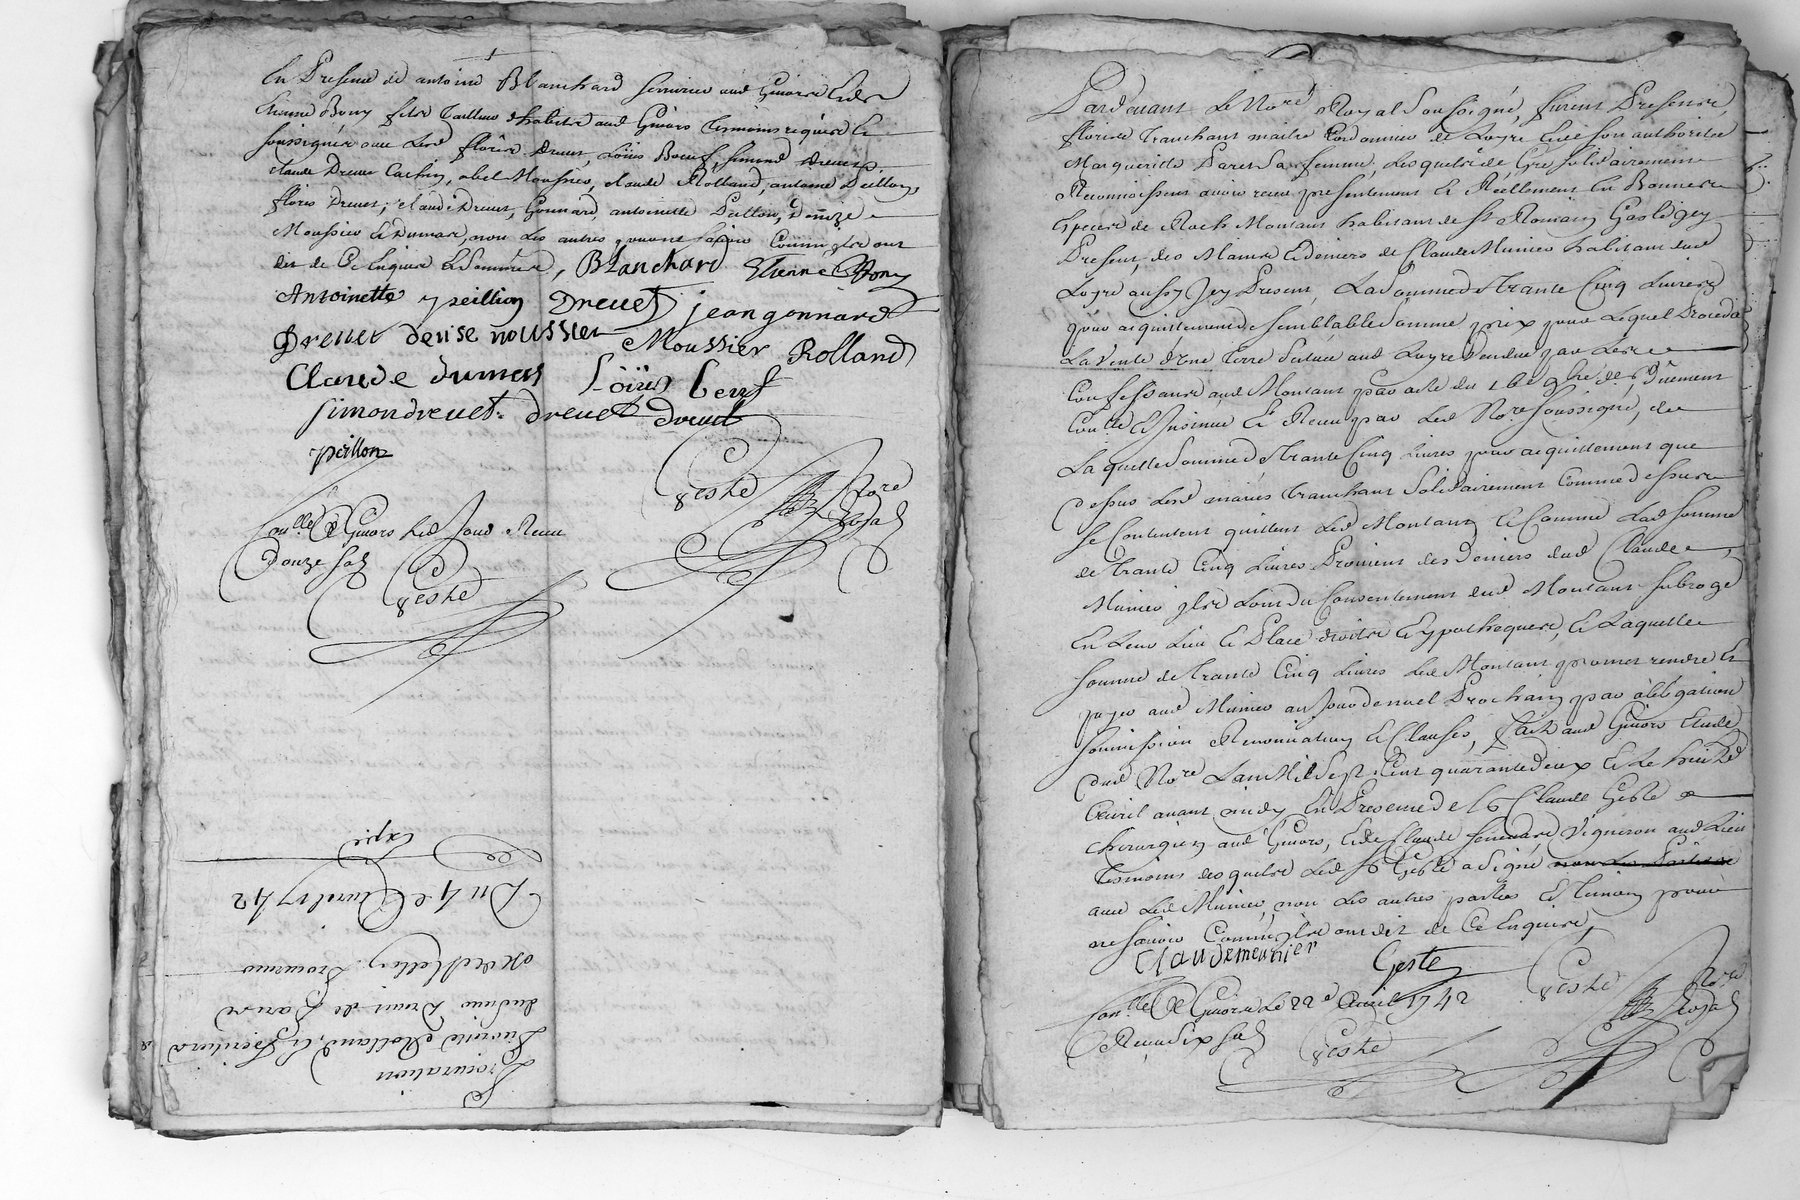 En Presence de antoine Blanchard serrurier aud Givors & de
Etienne Bony filz tailleur habitant aud Givors tesmoins requis &
soussignés avec lesd floris Dreuet, Loüis Boeuf, Simond Dreuet,
Claude Dreuet Cachin, abel Moussier, claude Rolland, antoine Peillon,
floris Dreuet, claude Dreuet, Gonnard, antoinette Peillon, denize
Moussier & Dumas, non les autres pour ne sçavoir comm'ilz ont
dit de ce Enquis & Sommés,
Blanchard Etienne Bony
Antoinette peillion Dreuet jean gonnard
Dreuet denise moussier Moussier Rolland
Claude dumas Loüis beuf
simon dreuet dreuet dreuet
peillon
Geste Nore Royal
Conllé A Givors led Jour Receu
Douze sols
Geste
Procuration
Rolland,
Dreuet de
Du 4e Avril 1742
Expié
Pardevant Le Nore Royal Soussigné, furent Presents,
floris Tranchant maitre Cordonnier de Loyre & de son authorité
Margueritte Paret Sa femme, Lesquels de Gré solidairement
Reconnoissent avoir receu presentement & Réellement En Bonnes
Especes de Roch Montant habitant de St Romain
Present, des Mains & deniers de Claude Munier habitant dud
Loyre aussy Icy Present, La Somme de trante Cinq Livres
pour acquittement de semblable Somme prix pour Lequel Procede
La Vente d'une terre Scituée aud Loyre Vendue par Lesd
Confessants aud Montant par acte du 16e 9bre dernier düement
Conllé & Insinué & Receu par Led Nore soussigné, de
Laquelle Somme de trante Cinq Livres pour acquittement que
dessus Lesd mariés tranchant Solidairement Comme dessus
se Contentent quittent Led Montant & Comme Lad somme
de trante Cinq Livres Provient des Deniers dud Claude
Munier Ilz L'ont du Consentement dud Montant subrogé
En Leur Lieu & Place droits & ypotheques, & Laquelle
somme de trante Cinq Livres Led Montant promet rendre &
payer aud Munier au Jour de nuel Prochain par obligation
soumission Renonciation & Clauses, fait aud Givors Etude
dud Nore L'an Mil Sept Cent quarante deux & Le huit
Avril avant midy En Presence de Sr Claude Geste
chirurgien aud Givors, & de Claude Vigneron aud Lieu
tesmoins desquels Led Sr Geste a Signé
avec Led Munier, non Les autres parties & temoin pour
ne sçavoir Comm'ilz ont dit de Ce Enquis,
Claude meunier
Geste Geste Nore Royal
Conllé A Givors Le 22e Avril 1742
Receu Six sols
Geste